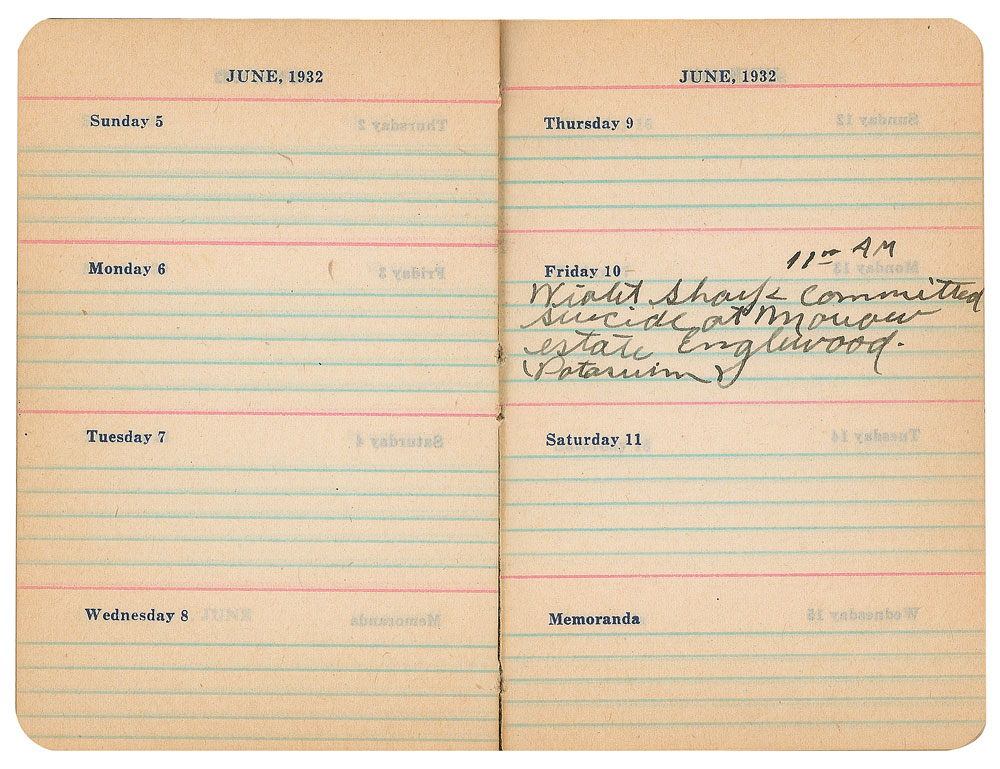 JUNE, 1932
Sunday 5
Monday 6
Tuesday 7
Wednesday 8
JUNE, 1932
Thursday 9
Friday 10
11 00 AM
Violet Sharpe Committed
suicide at Morrow
estate Englewood.
(Potassium)
Saturday 11
Memoranda